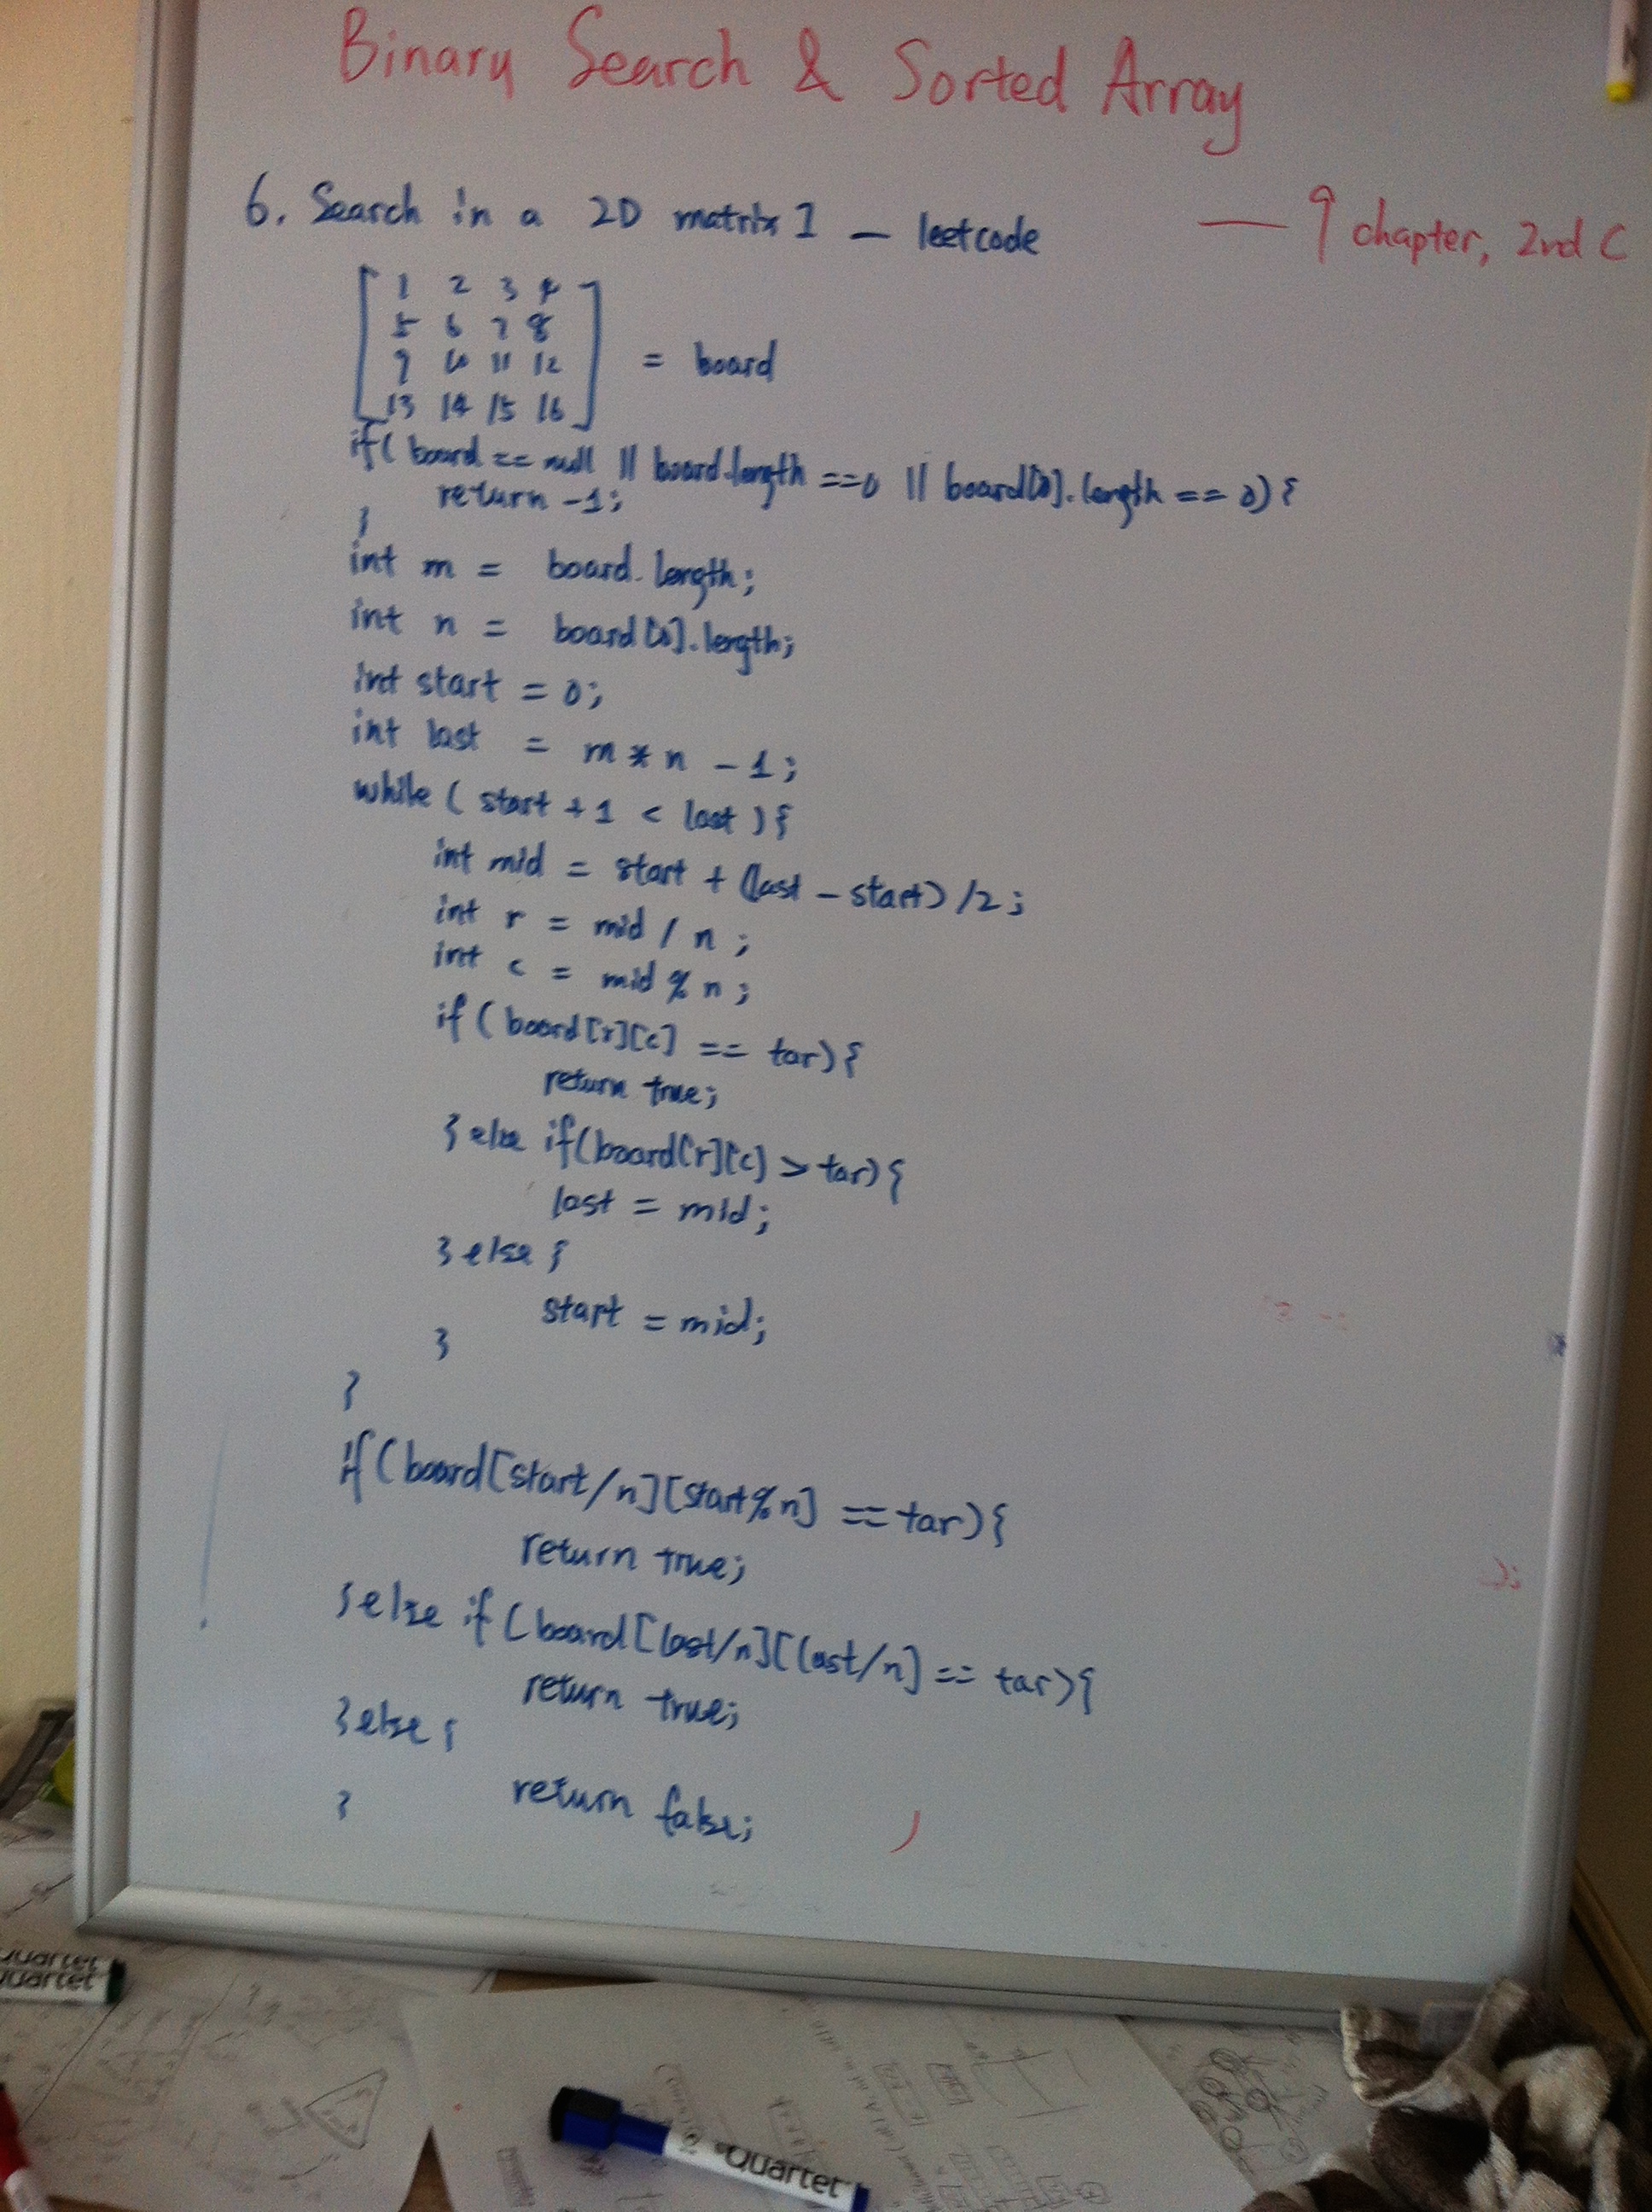 Binary Search & Sorted Array
6. Search in a 2D matrix I — leetcode — 9 chapter, 2nd C
1 2 3 4
5 6 7 8
9 10 11 12 = board
13 14 15 16
if( board == null || board.length ==0 || board[0].length == 0){
return -1;
}
int m = board.length;
int n = board[0].length;
int start = 0;
int last = m * n - 1;
while ( start + 1 < last ){
int mid = start + (last - start) /2;
int r = mid / n;
int c = mid % n;
if ( board[r][c] == tar){
return true;
} else if(board[r][c] > tar){
last = mid;
} else {
start = mid;
}
}
if (board[start/n][start%n] == tar){
return true;
} else if (board[last/n][last/n] == tar){
return true;
} else {
return false;
}
Quartet
Quartet
Quartet